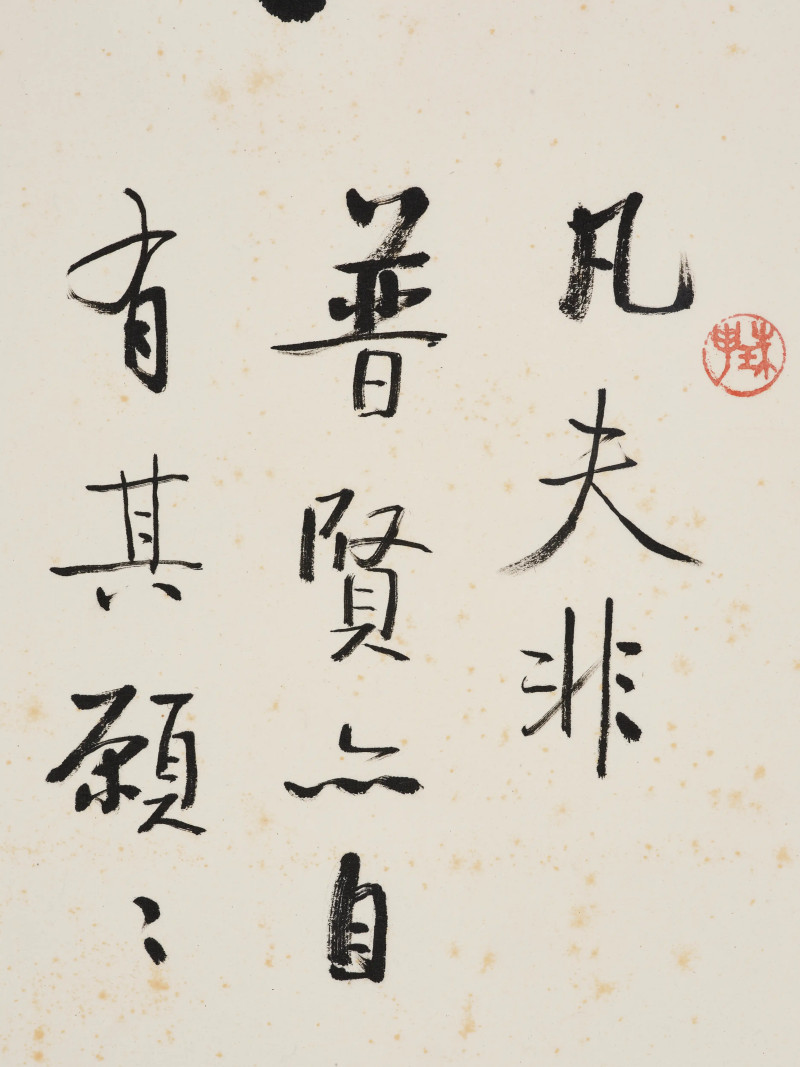 凡夫非
普賢亦自
有其願〻